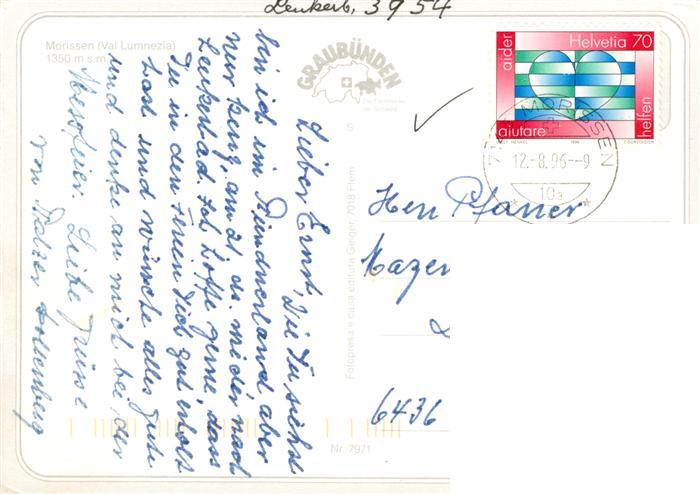 Leukerb, 3954
Morissen (Val Lumnezia)
1350 m s.m.
GRAUBÜNDEN
Die Ferienecke
der Schweiz
S
aider
Helvetia 70
aiutare
helfen
COURVOISIER
MORISSEN
12.-8.96--9
10a
Lieber Ernst, Wie Du siehst
bin ich im Bündnerland aber
nur kurz, am 21. ds. wieder nach
Leukerbad. Ich hoffe gerne, dass
Du in den Ferien Dich gut erholt
hast und wünsche alles Gute
und denke an mich bei der
Liebe Grüsse
von
Fotopresa e casa editura Geiger, 7018 Flem
Nr. 7971
Herr Pfarrer
6436